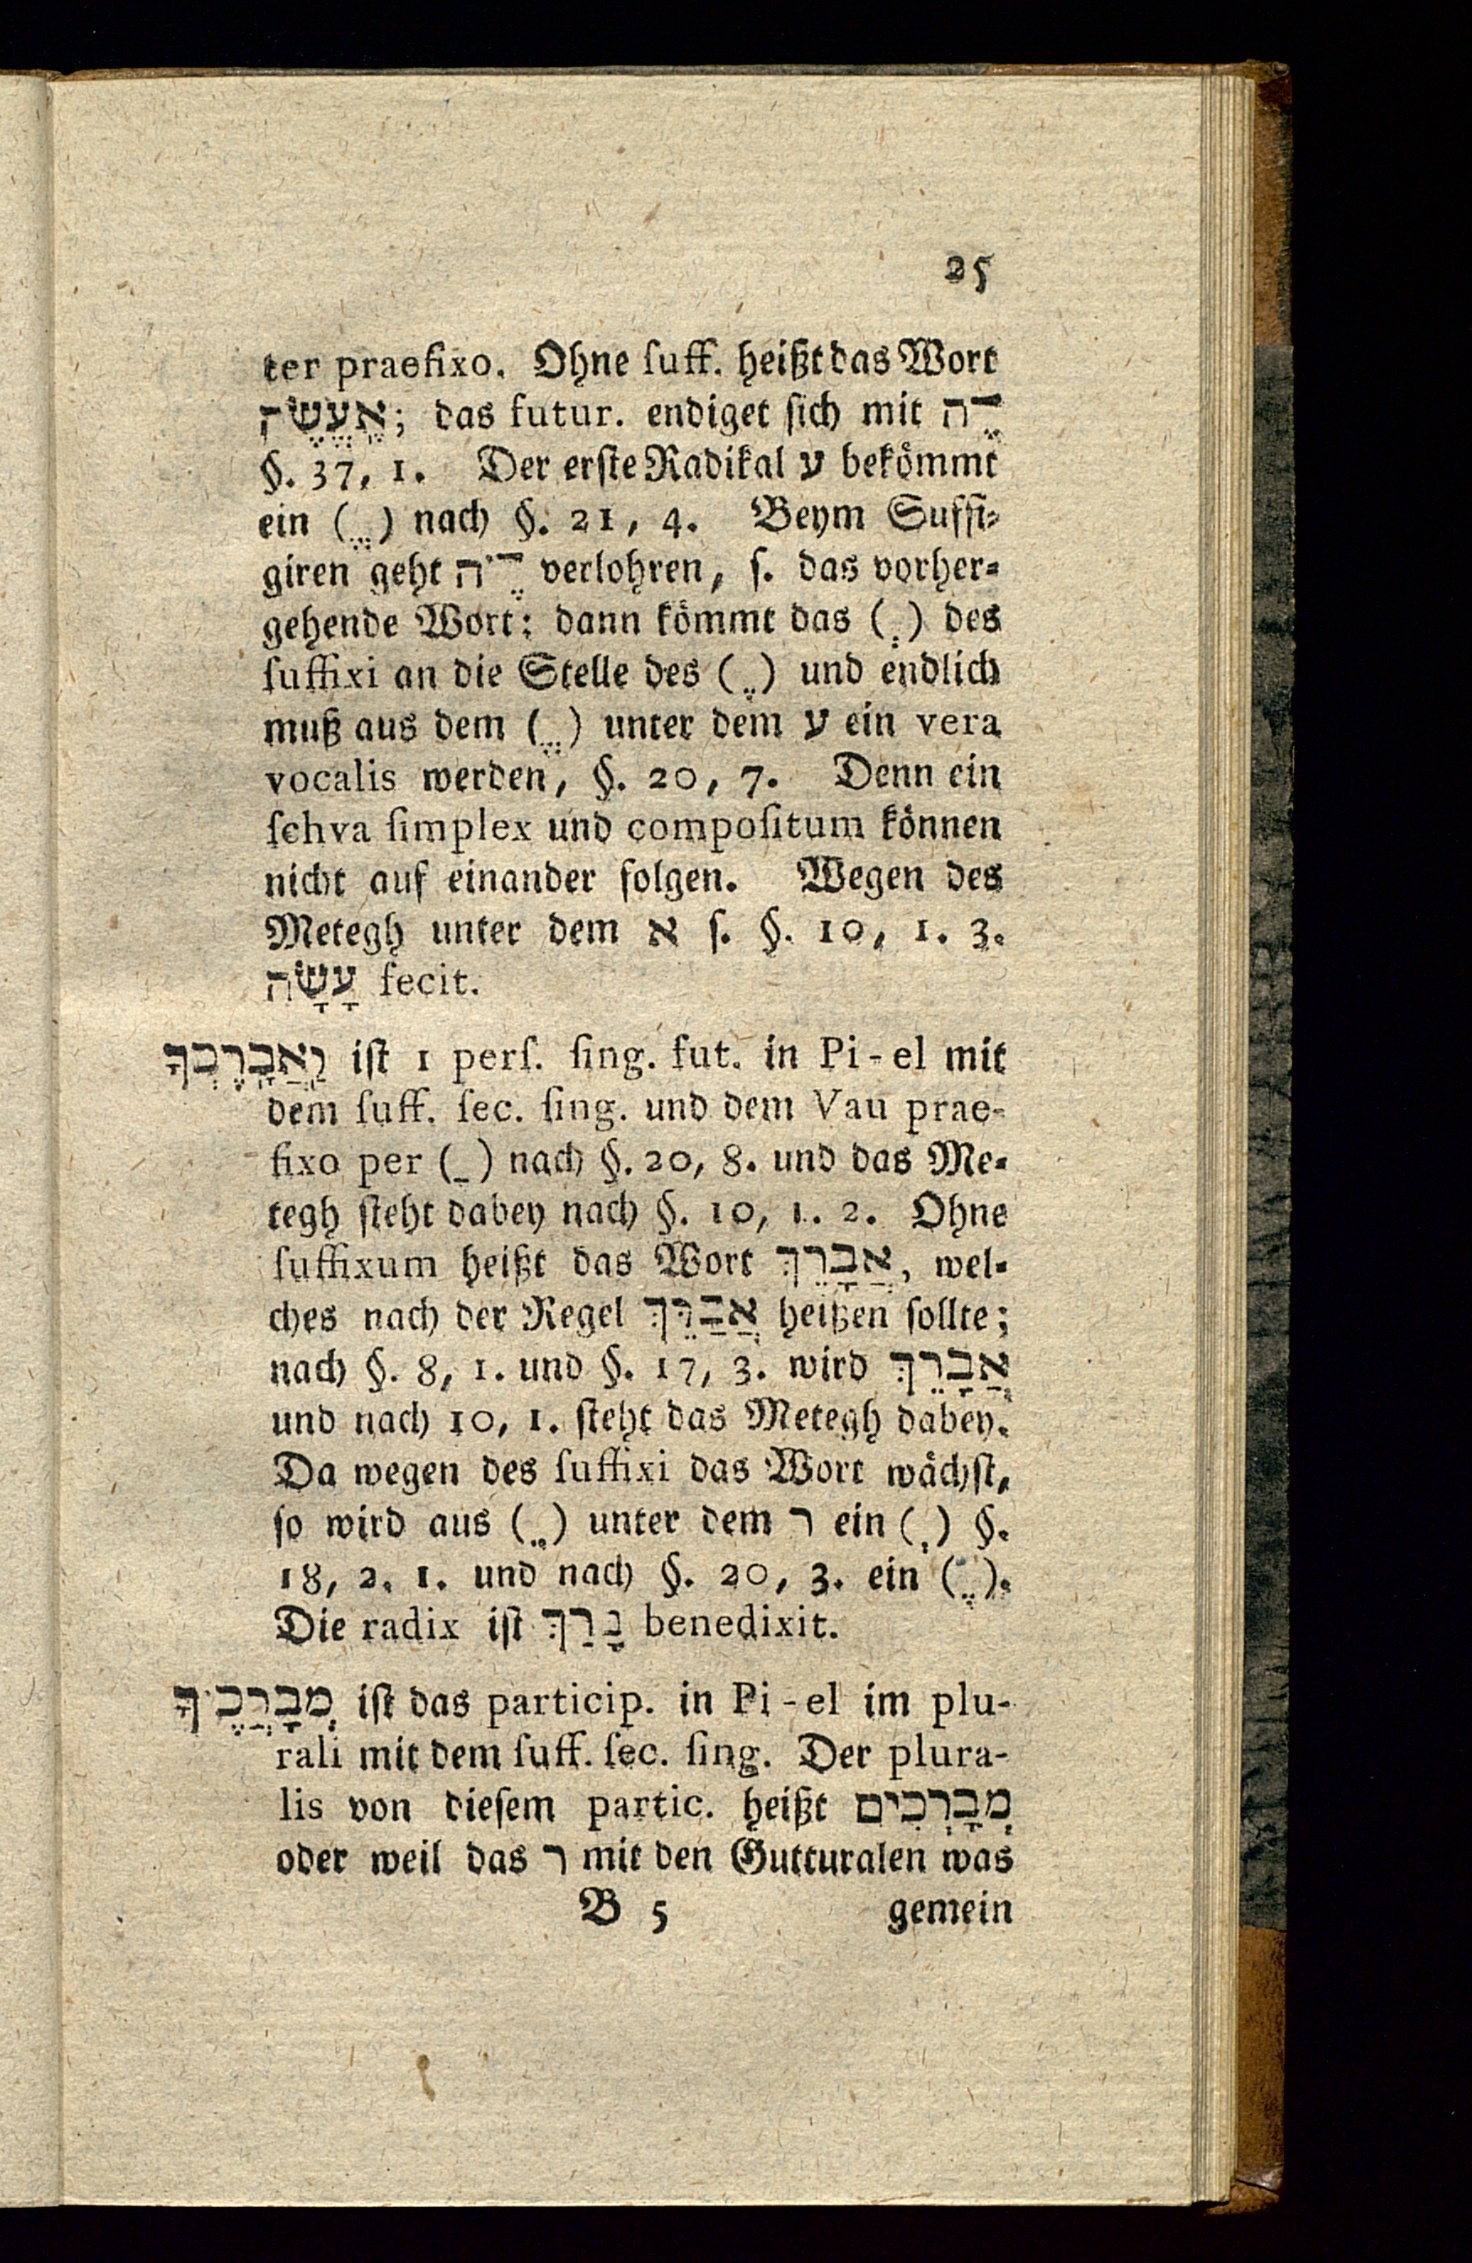 25
ter praefixo. Ohne ſuff. heißt das Wort
אֶֽעֱשֶׂה; das futur. endiget ſich mit ־ֶה
§. 37, 1. Der erſte Radikal ע bekömmt
ein (ֱ) nach §. 21, 4. Beym Suffi-
giren geht ־ֶה verlohren, ſ. das vorher-
gehende Wort; dann kömmt das (ְ) des
ſuffixi an die Stelle des (ֶ) und endlich
muß aus dem (ֱ) unter dem ע ein vera
vocalis werden, §. 20, 7. Denn ein
ſchva ſimplex und compoſitum können
nicht auf einander folgen. Wegen des
Metegh unter dem א ſ. §. 10, 1. 3.
עָשָׂה fecit.
וַֽאֲבָרֶכְךָ iſt 1 perſ. ſing. fut. in Pi-el mit
dem ſuff. ſec. ſing. und dem Vau prae-
fixo per (ַ) nach §. 20, 8. und das Me-
tegh ſteht dabey nach §. 10, 1. 2. Ohne
ſuffixum heißt das Wort אֲבָרֵךְ, wel-
ches nach der Regel אֲבַרֵּךְ heißen ſollte;
nach §. 8, 1. und §. 17, 3. wird אֲבָרֵךְ
und nach 10, 1. ſteht das Metegh dabey.
Da wegen des ſuffixi das Wort wächſt,
ſo wird aus (ֵ) unter dem ר ein (ְ) §.
18, 2. 1. und nach §. 20, 3. ein (ֶ).
Die radix iſt בָּרַךְ benedixit.
מְבָרֲכֶיךָ iſt das particip. in Pi-el im plu-
rali mit dem ſuff. ſec. ſing. Der plura-
lis von dieſem partic. heißt מְבָרְכִים
oder weil das ר mit den Gutturalen was
B 5 gemein